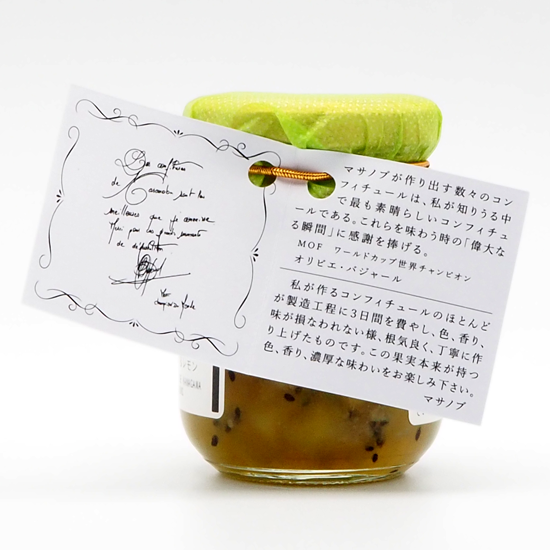 Les confitures
de Masanobu sont les
meilleures que je connaisse
de dégustation
マサノブが作り出す数々のコン
フィチュールは、私が知りうる中
で最も素晴らしいコンフィチュ
ールである。これらを味わう時の「偉大な
る瞬間」に感謝を捧げる。
MOF ワールドカップ世界チャンピオン
オリビエ・バジャール
私が作るコンフィチュールのほとんど
が製造工程に3日間を費やし、色、香り、
味が損なわれない様、根気良く、丁寧に作
り上げたものです。この果実本来が持つ
色、香り、濃厚な味わいをお楽しみ下さい。
マサノブ
レモン